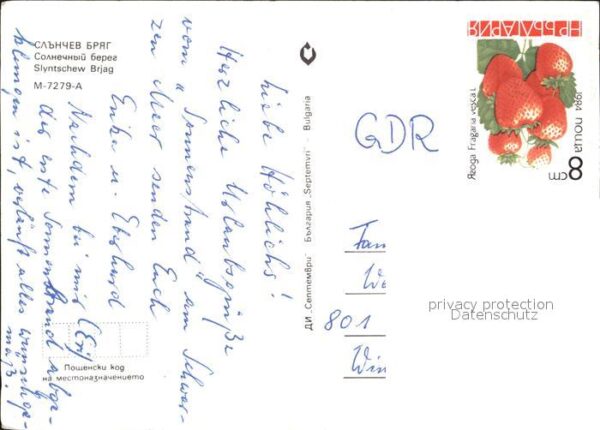 СЛЪНЧЕВ БРЯГ
Солнечный берег
Slyntschew Brjag
М-7279-А
Liebe Höhlichs!
Herzliche Urlaubsgrüße
vom "Sonnenstrand" am Schwar-
zen Meer senden Euch
Erika u. Eberhard
Nachdem bei mir (Eri)
der erste Sonnenbrand abge-
klungen ist, verläuft alles
Пощенски код
на местоназначението
ДИ „Септември" България „Septemvri" Bulgaria
GDR
НР БЪЛГАРИЯ
1984 поща
8 cm
Ягода Fragaria vesca L.
Fam
We
801
Win
privacy protection
Datenschutz